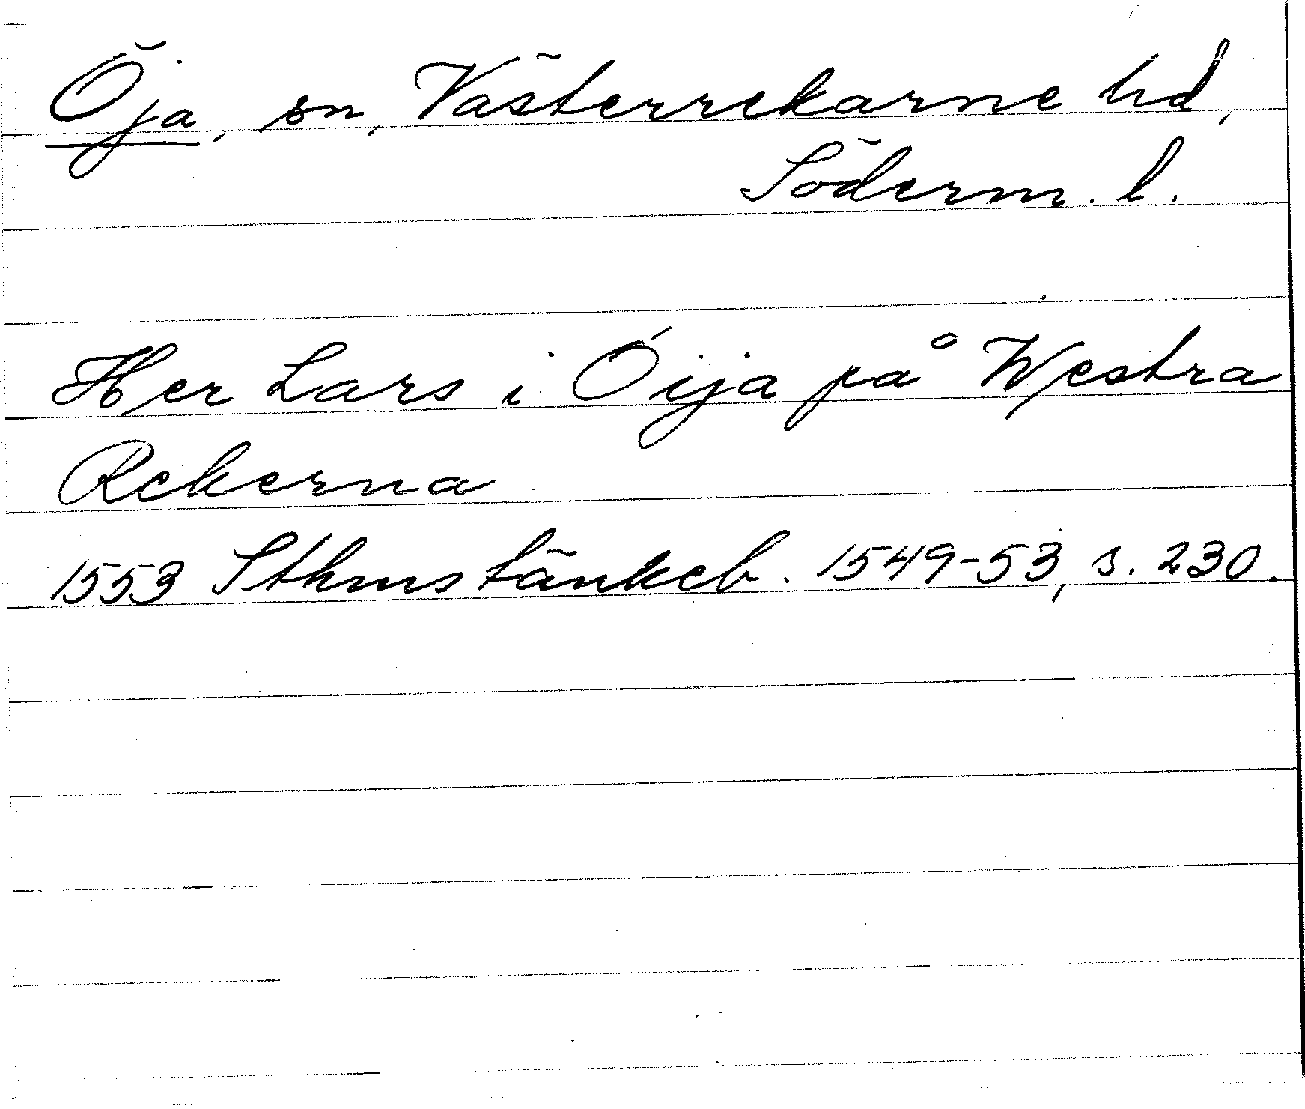 Öja, sn, Västerrekarne hd,
Söderm. l.
Her Lars i Öija på Westra
Rekerna
1553 Sthms tänkeb. 1549-53, s. 230.